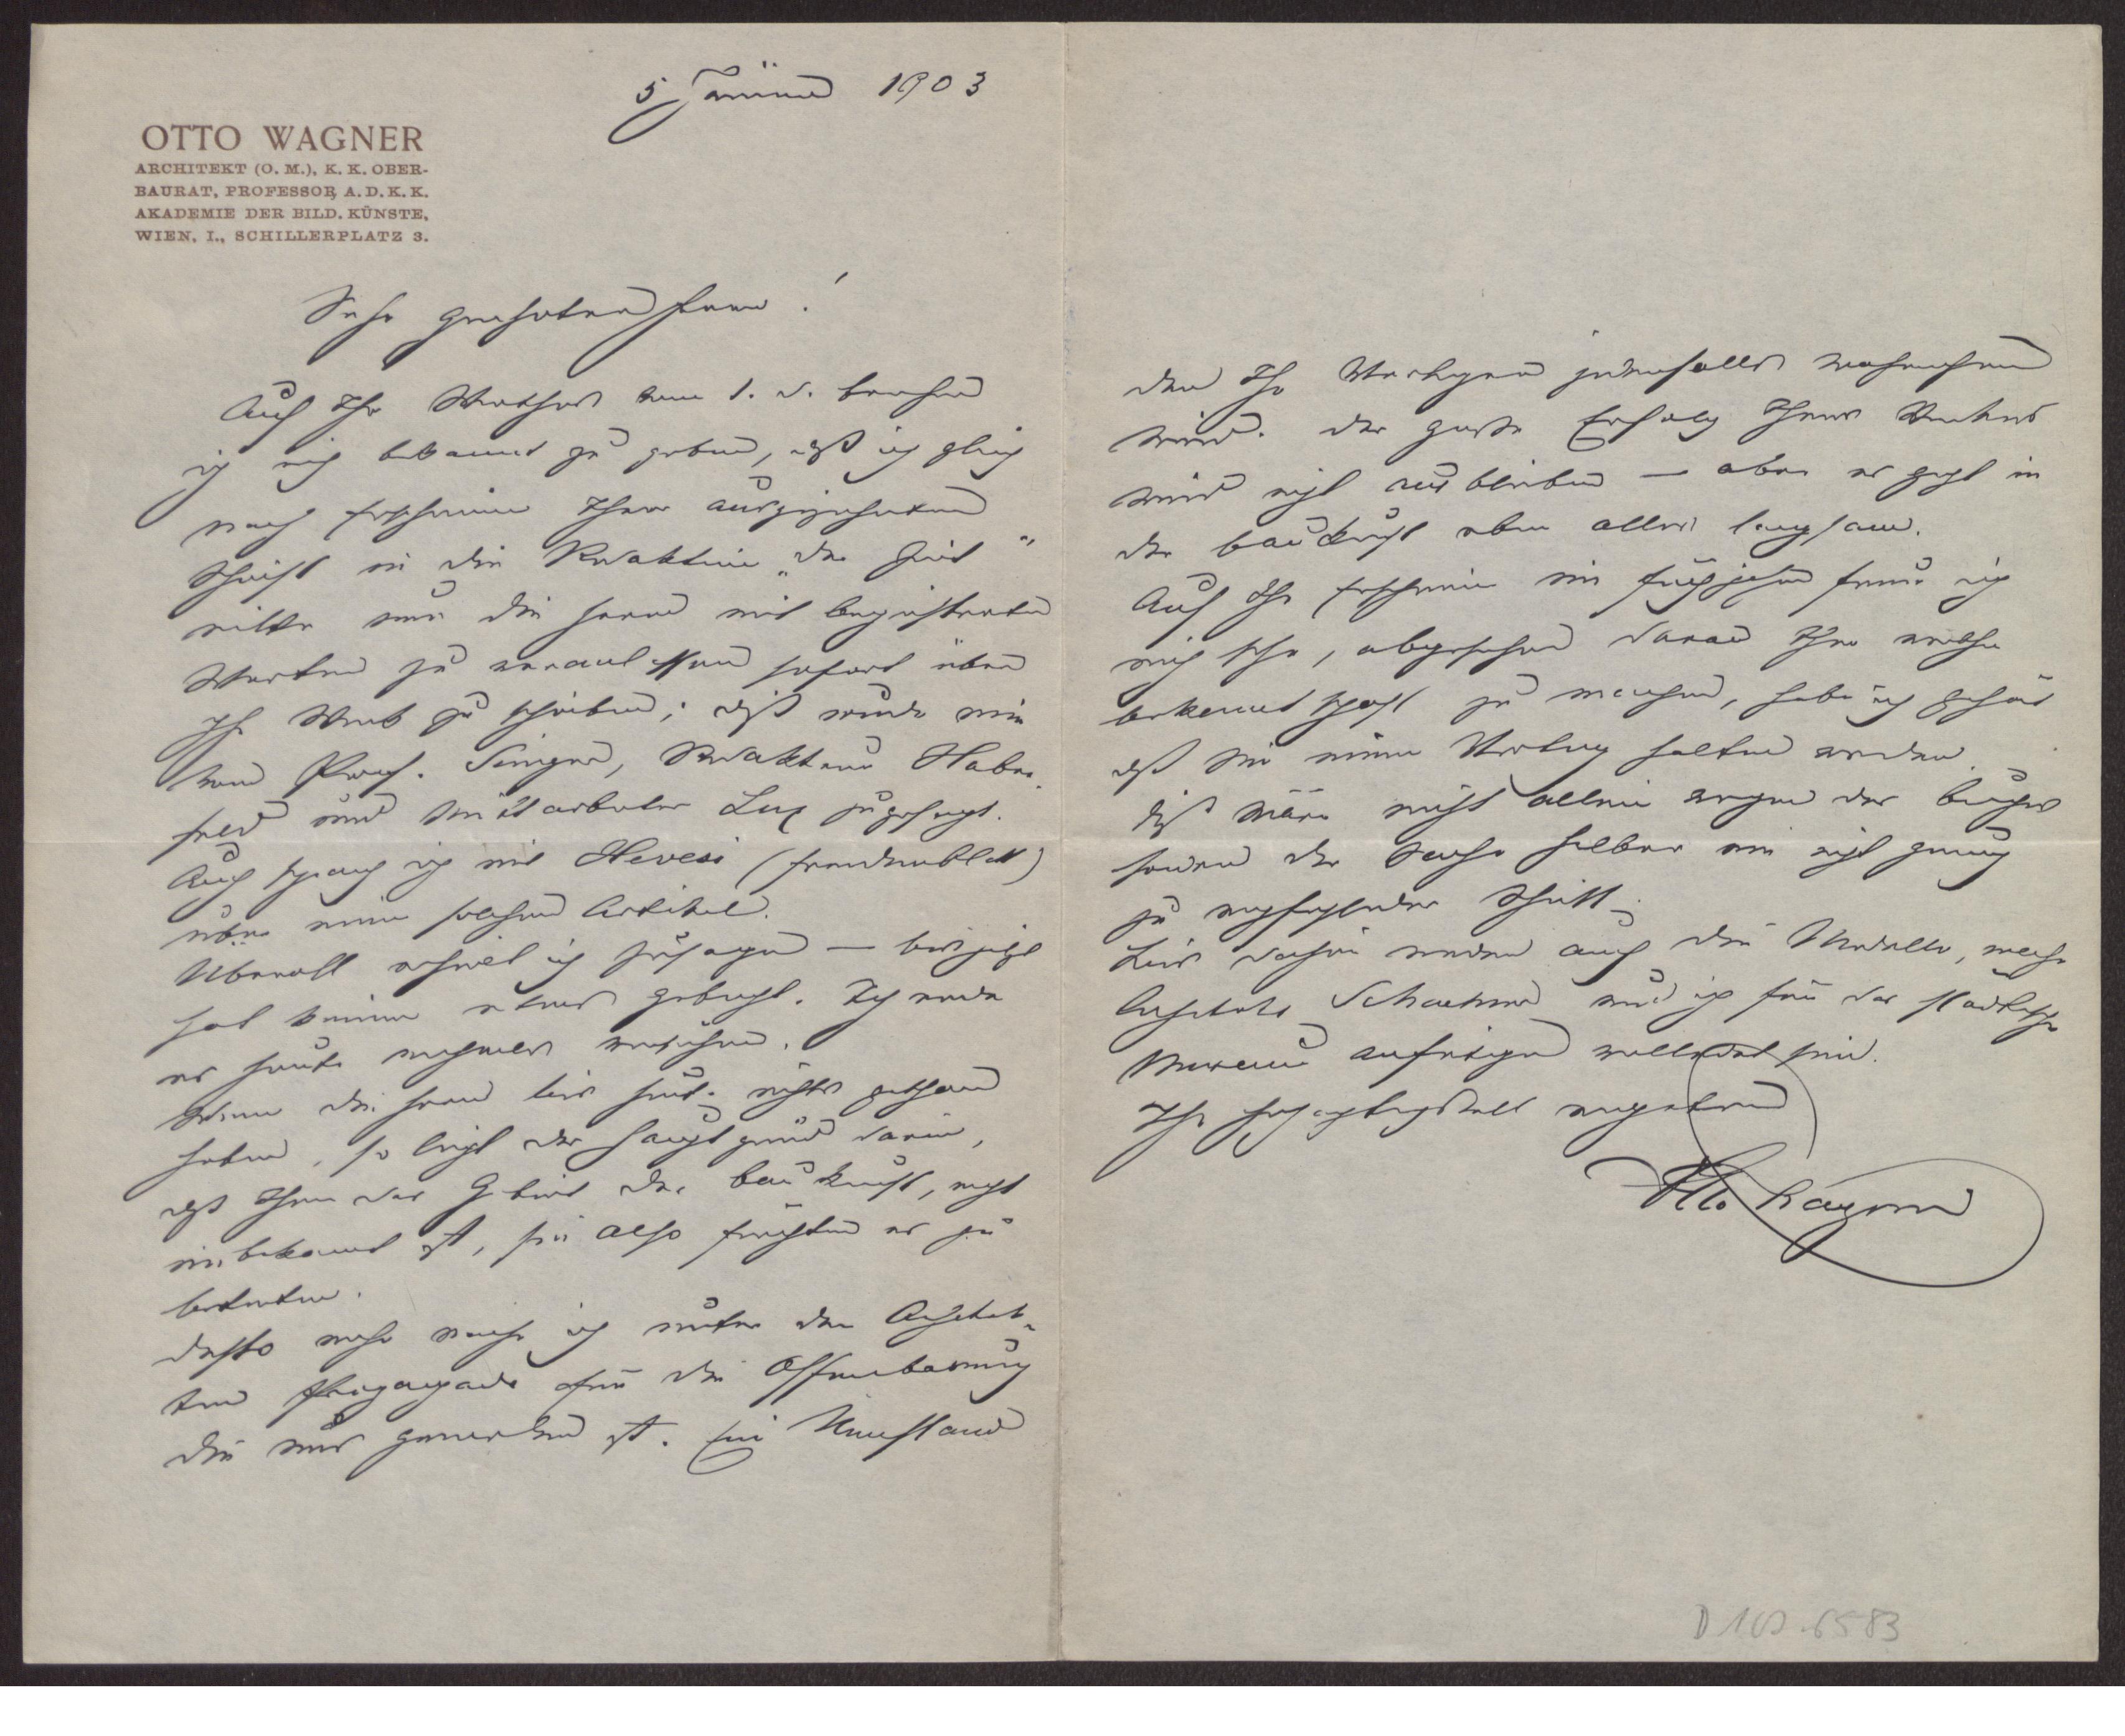 5 Jänner 1903
OTTO WAGNER
ARCHITEKT (O. M.), K. K. OBER-
BAURAT, PROFESSOR A. D. K. K.
AKADEMIE DER BILD. KÜNSTE,
WIEN, I., SCHILLERPLATZ 3.
Sehr geehrter Herr!
Auf Ihr Werthes vom 1. d. beehre
ich mich bekannt zu geben, daß ich gleich
nach Erscheinen Ihrer ausgezeichneten
Schrift in die Redaktion „der Zeit"
eilte um die Herren mit begeisterten
Worten zu veranlassen sofort über
Ihr Werk zu schreiben; diß wurde mir
von Prof. Singer, Redakteur Haber-
feld und Mitarbeiter Lux zugesagt.
Auch sprach ich mit Hevesi (Fremdenblatt)
über einen solchen Artikel.
Überall erhielt ich Zusagen — bis jetzt
hat keiner etwas gebracht. Ich werde
es heute nochmals versuchen.
Wenn die Herren bis heute nichts gethan
haben, so liegt der Hauptgrund darin,
daß Ihnen das Gebiet der Baukunst, recht
unbekannt ist, sie also fürchten es zu
betreten.
Desto mehr mache ich unter den Architek-
ten Propaganda für die Offenbarung
die uns geworden ist. Ein Umstand
den Ihr Verleger jedenfalls wahrnehmen
wird. Der große Erfolg Ihres Werkes
wird nicht ausbleiben — aber es geht in
der Baukunst eben alles langsam.
Auf Ihr Erscheinen im Frühjahr freue ich
mich sehr, abgesehen davon Ihre werthe
Bekanntschaft zu machen, habe ich gehört
daß Sie einen Vortrag halten werden.
Diß wäre nicht allein wegen des Buches
sondern der Sache selber ein nicht genug
zu empfehlender Schritt.
Bis dahin werden auch die Modelle, welche
Architekt Schachner und ich für das städtische
Museum anfertigen vollendet sein.
Ihr hochachtungsvoll ergebener
Otto Wagner